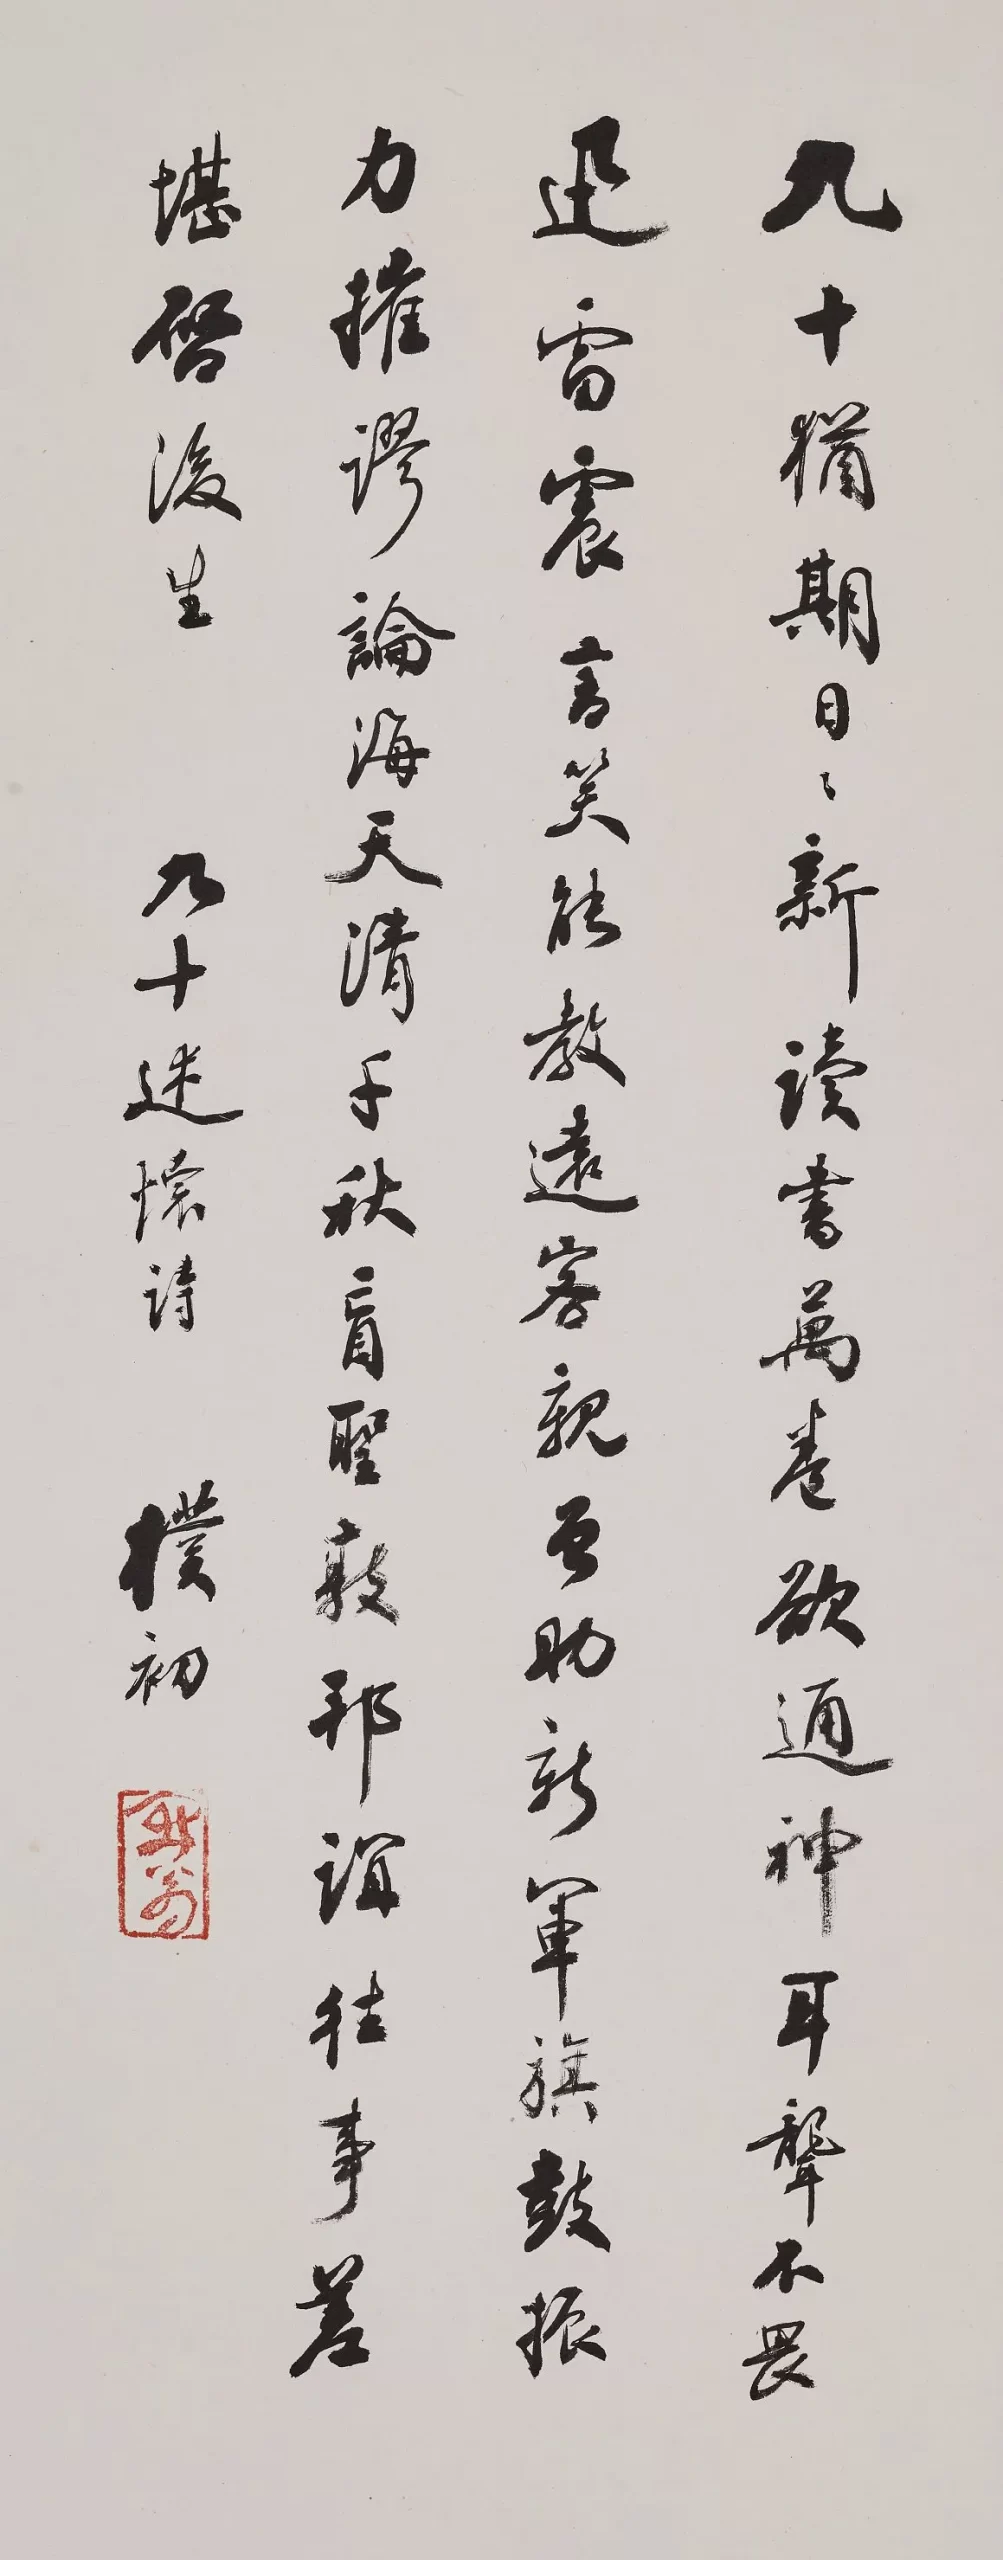 九十猶期日々新讀書萬卷欲通神耳聾不畏
迅雷震言笑能教遠客親曾助新軍旗鼓振
力摧謬論海天清千秋盲聖敦邦誼往事差
堪啓後生 九十述懷詩 樸初